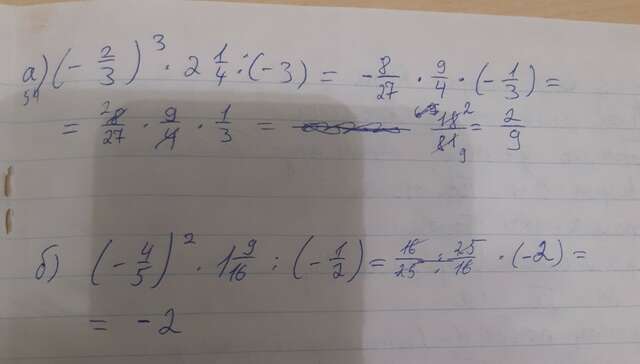 а) (-2/3)³ · 2 1/4 : (-3) = -8/27 · 9/4 · (-1/3) =
= 8/27 · 9/4 · 1/3 = 18/81 = 2/9
б) (-4/5)² · 1 9/16 : (-1/2) = 16/25 · 25/16 · (-2) =
= -2